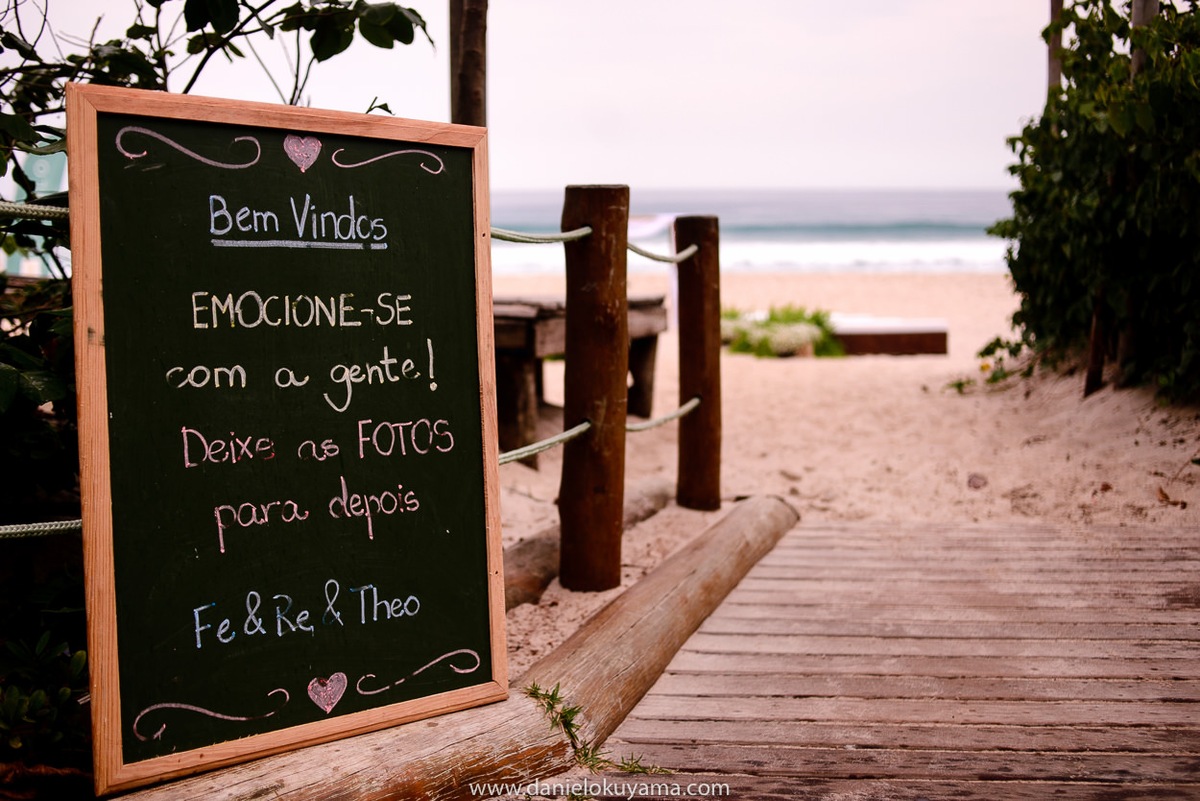 Bem Vindos
EMOCIONE-SE
com a gente!
Deixe as FOTOS
para depois
Fe & Re, & Theo
www.danielokuyama.com